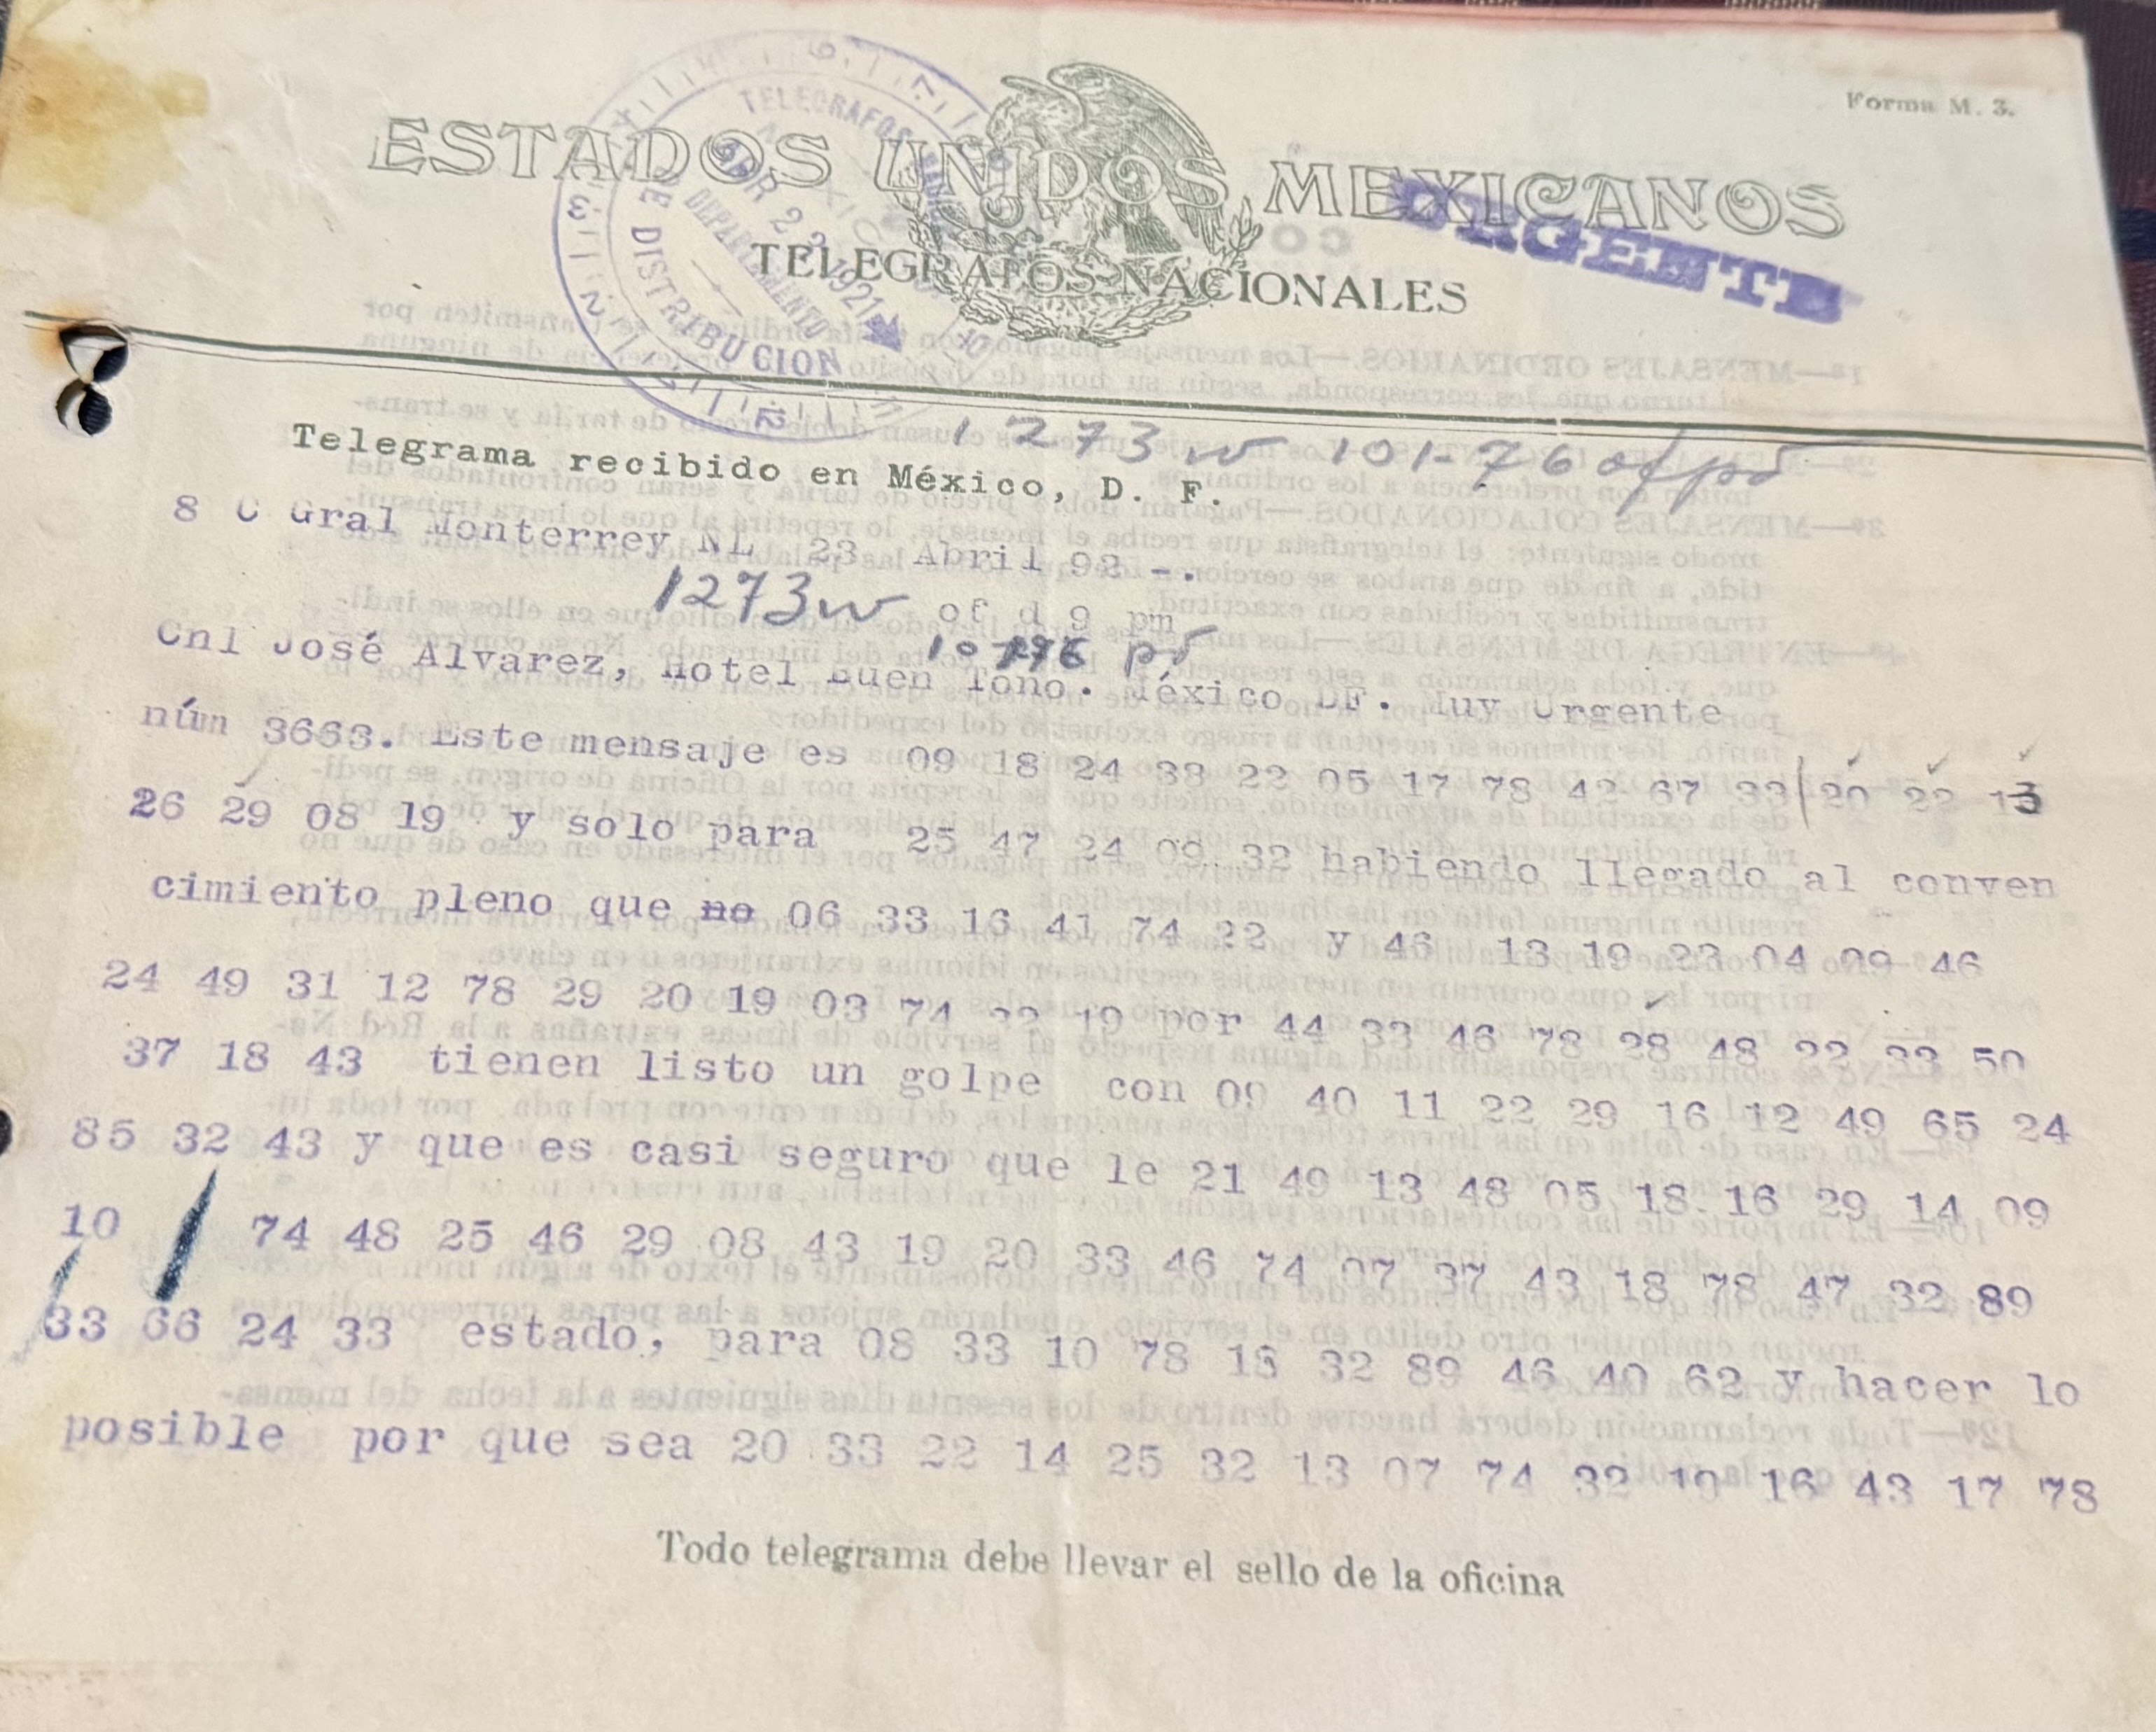 Forma M. 3.
ESTADOS UNIDOS MEXICANOS
TELEGRAFOS NACIONALES
URGENTE
TELEGRAFOS
ABR 23 1921
DEPARTAMENTO
DE DISTRIBUCION
1273w 101-76 of pd
Telegrama recibido en México, D. F.
8 C Gral Monterrey NL 23 Abril 92 -.
1273w of d 9 pm
10 pd
Cnl José Alvarez, Hotel Buen Tono. México DF. Muy Urgente
núm 3663. Este mensaje es 09 18 24 33 22 05 17 78 42 67 33 20 22 13
26 29 08 19 y solo para 25 47 24 09 32 habiendo llegado al conven
cimiento pleno que no 06 33 16 41 74 22 y 46 13 19 23 04 09 46
24 49 31 12 78 29 20 19 03 74 22 19 por 44 33 46 78 28 48 22 33 50
37 18 43 tienen listo un golpe con 09 40 11 22 29 16 12 49 65 24
85 32 43 y que es casi seguro que le 21 49 13 48 05 18 16 29 14 09
10 74 48 25 46 29 08 43 19 20 33 46 74 07 37 43 18 78 47 32 89
33 66 24 33 estado, para 08 33 10 78 13 32 89 46 40 62 y hacer lo
posible por que sea 20 33 22 14 25 32 13 07 74 32 10 16 43 17 78
Todo telegrama debe llevar el sello de la oficina